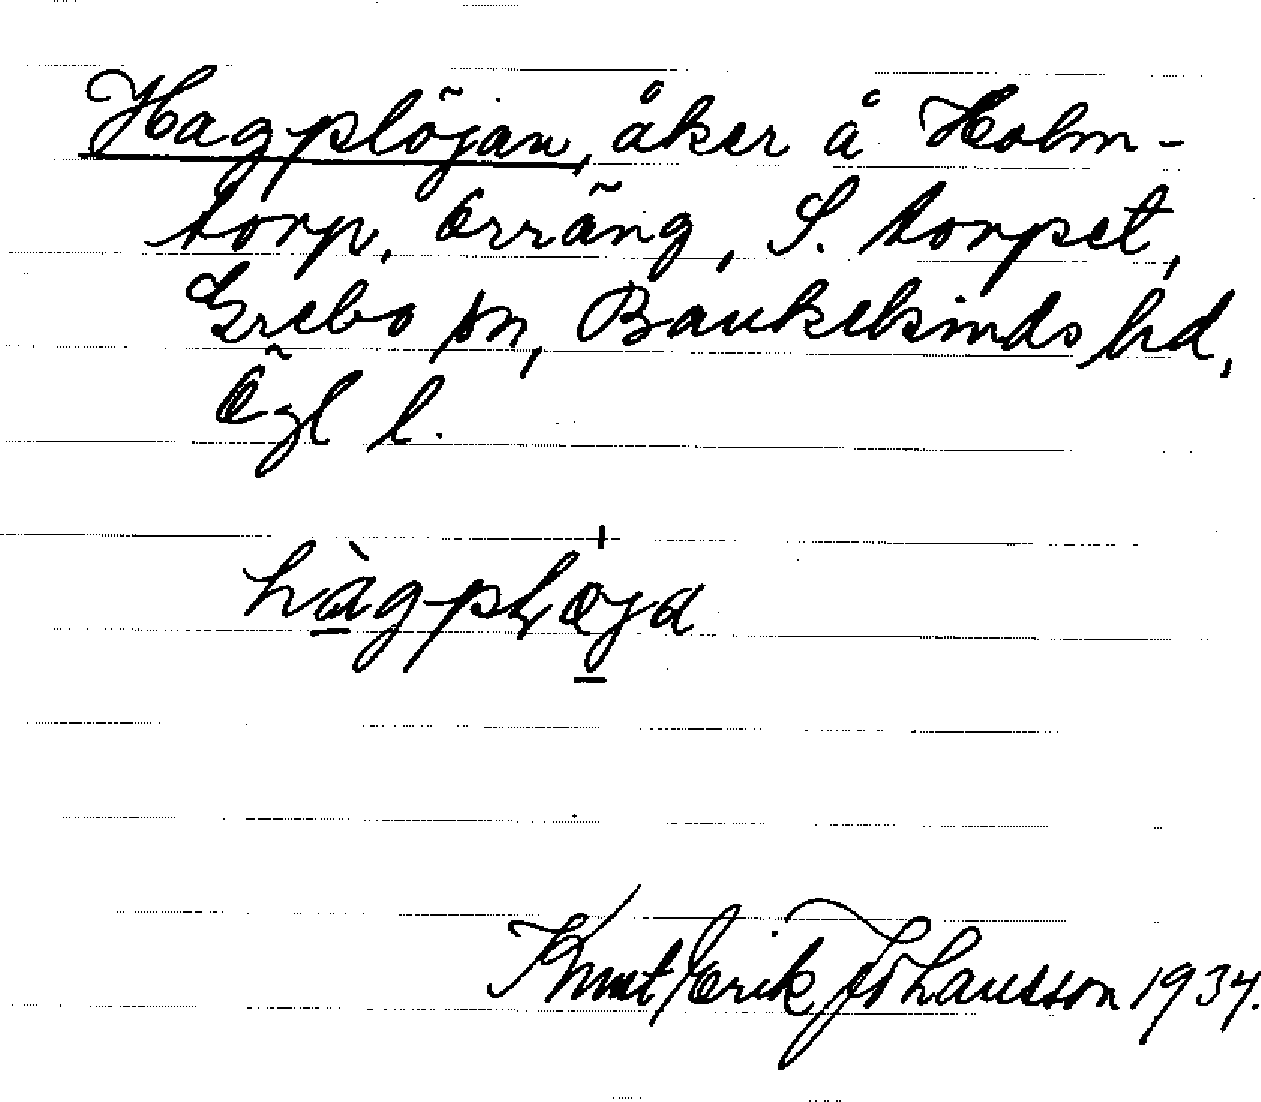 Hagplöjan, åker å Holm-
torp, Örräng, S. torpet,
Grebo sn, Bankekinds hd,
Ögl l.
hàgpløja
Knut Erik Johansson 1934.